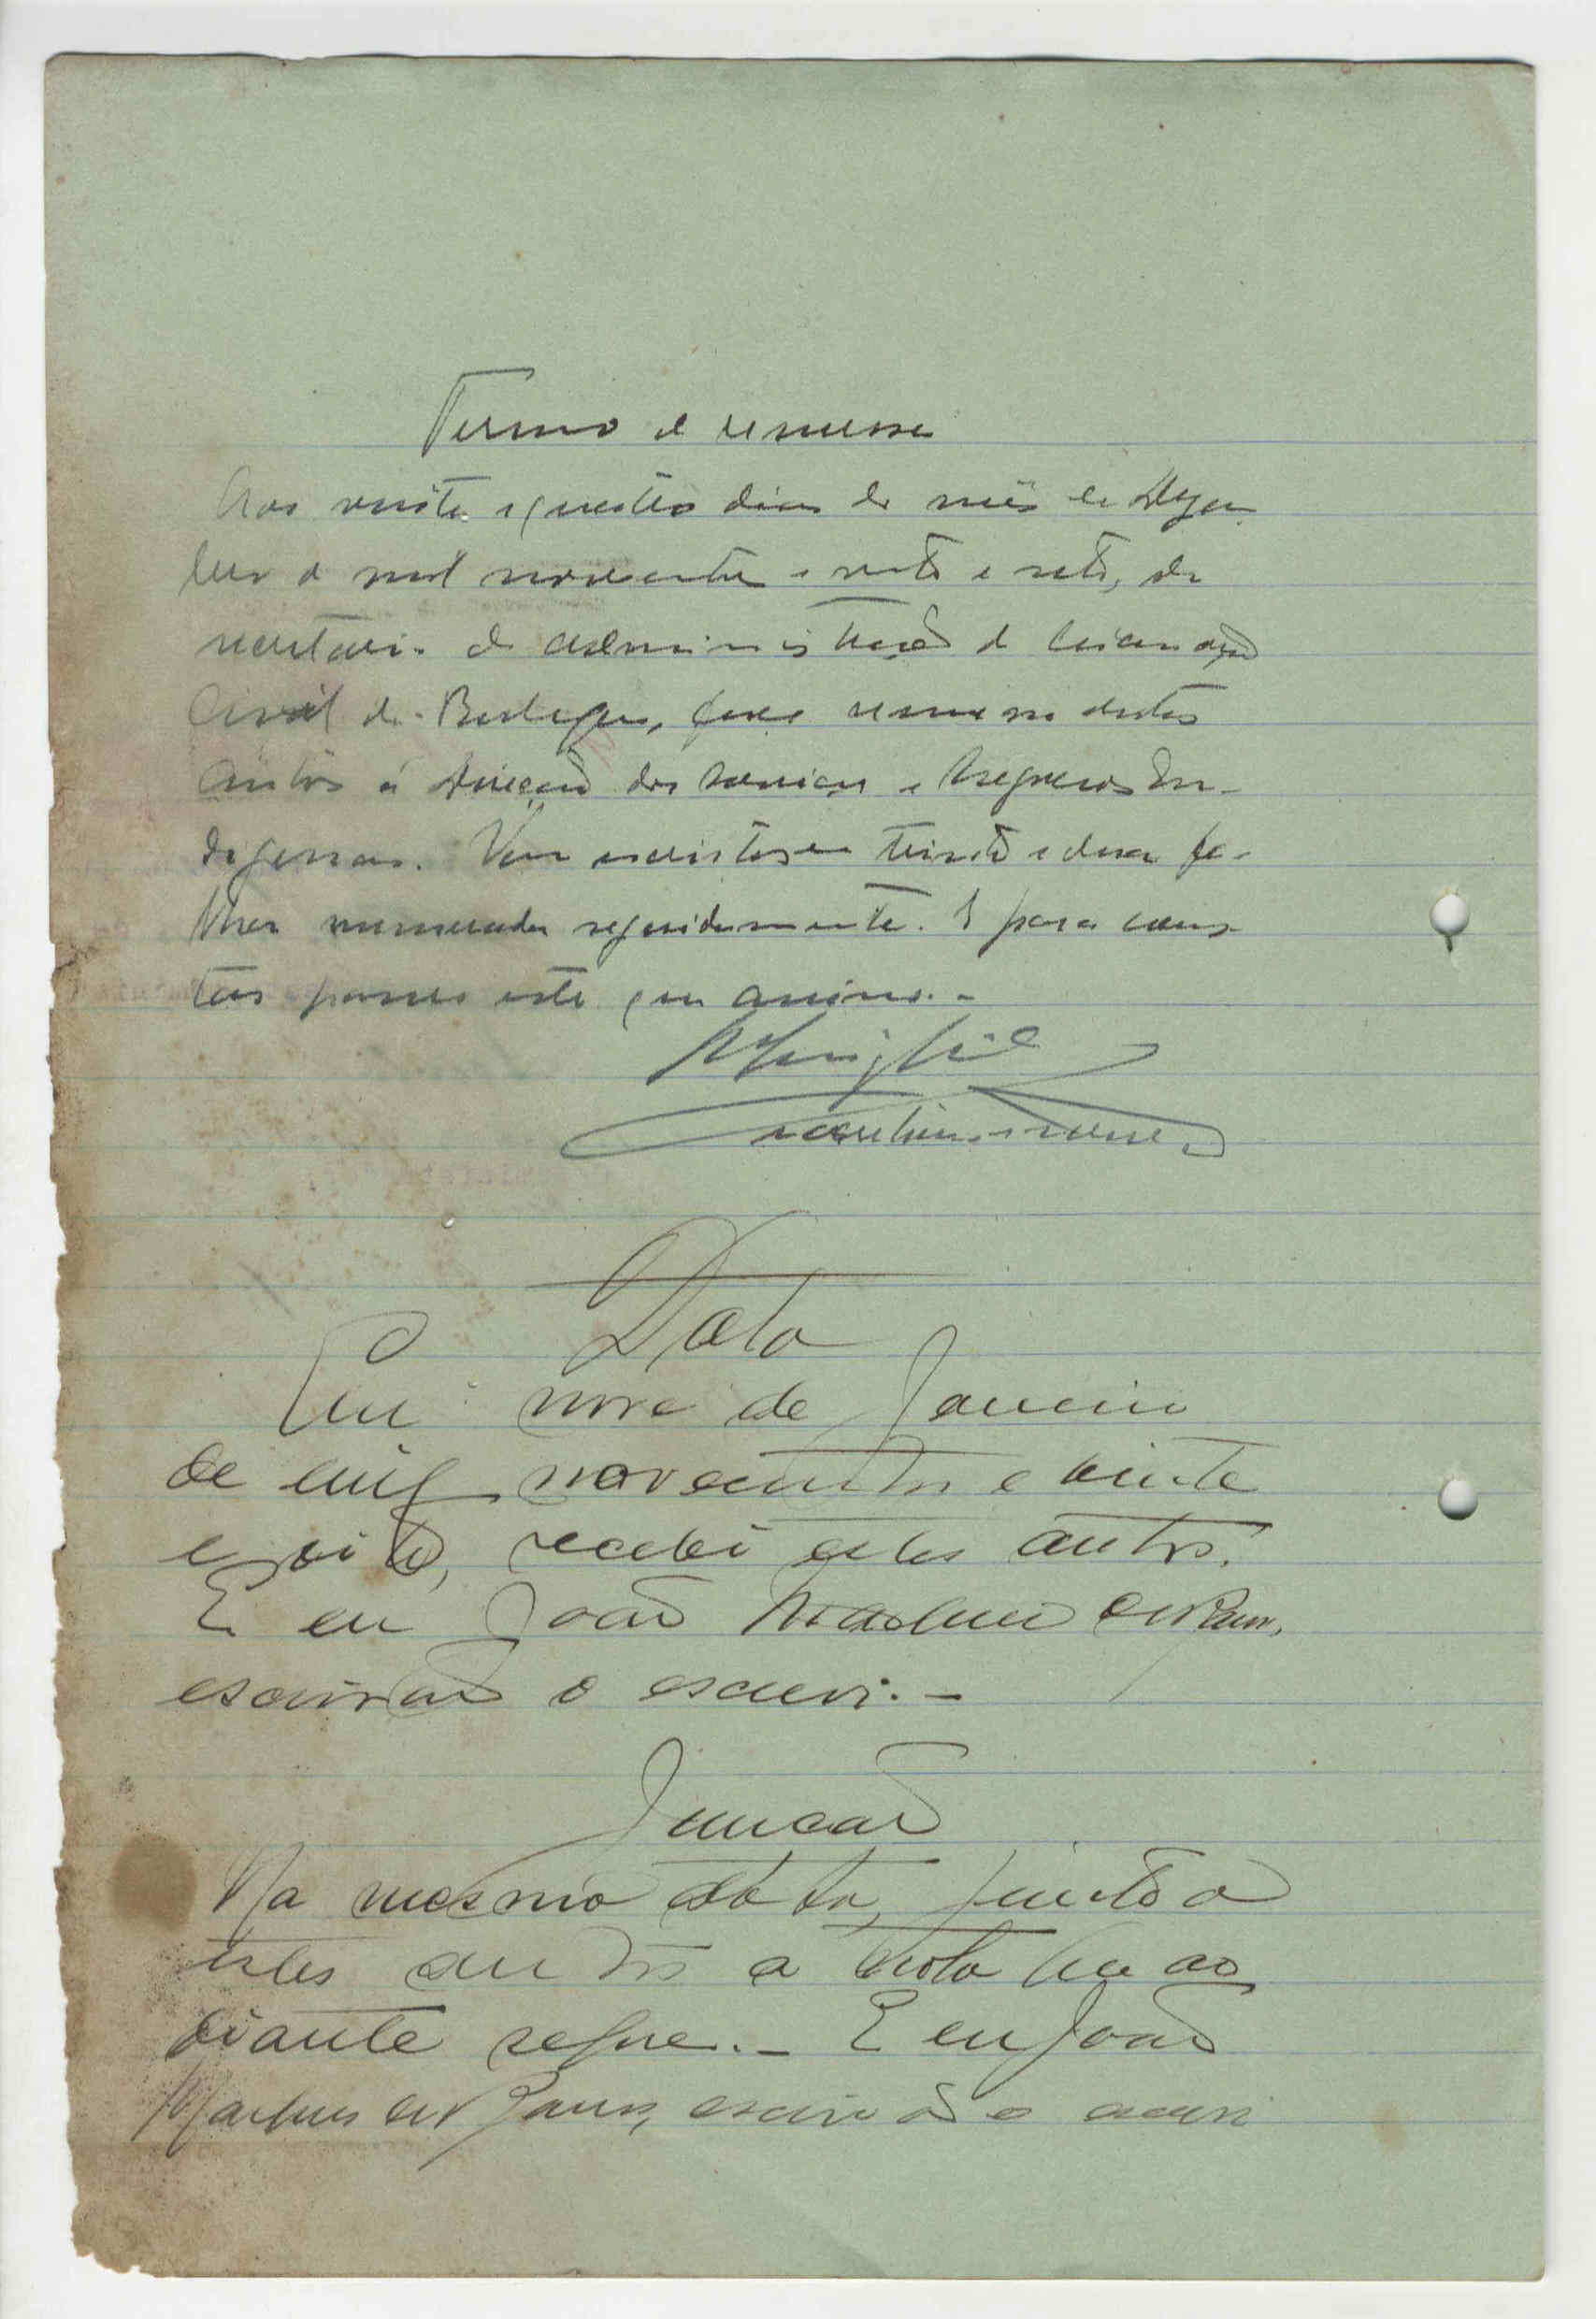 Termo de remessa
Aos vinte e quatro dias do mês de Dezem
bro de mil novecentos e vinte e sete, da
secretaria da administração da Circunscrição
Civil de, faço remessa destes
autos á Direcção dos Serviços e Negocios In-
digenas. Vão escritos em trinta e duas fo-
lhas numeradas seguidamente. E para cons-
tar passei este que assino.-
Data
Em nove de Janeiro
de mil novecentos e vinte
e oito, recebi estes autos.
E eu João
escrivão o escrevi.-
Juncão
Na mesma data, junto a
estes autos a nota que ao
diante segue.- E eu João
escrivão o escrevi